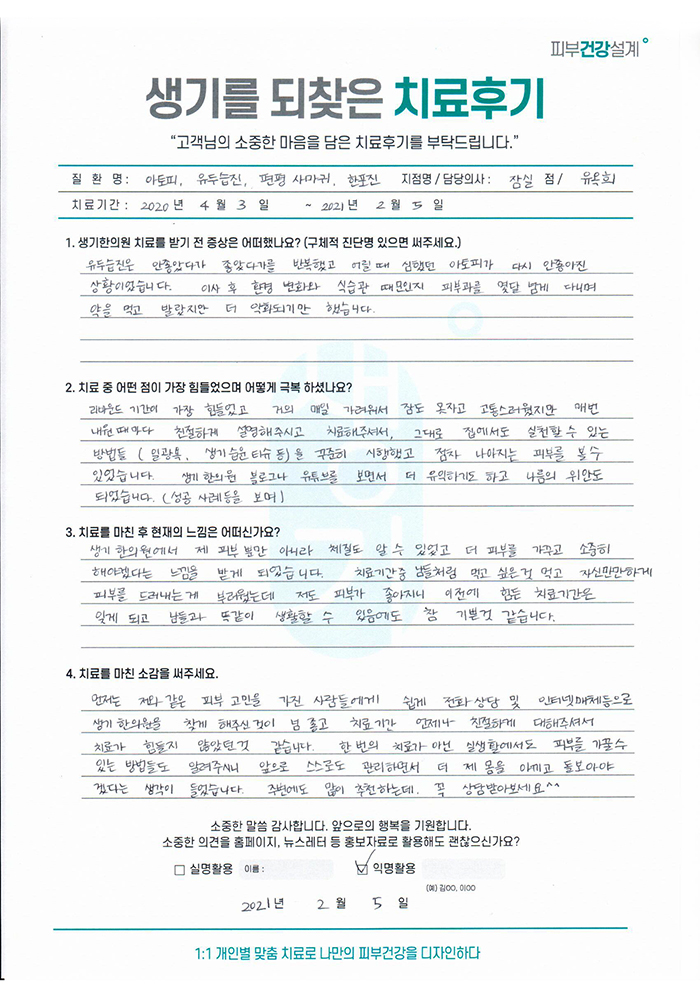 피부건강설계
생기를 되찾은 치료후기
“고객님의 소중한 마음을 담은 치료후기를 부탁드립니다.”
질 환 명 : 아토피, 유두습진, 편평 사마귀, 한포진 지점명 / 담당의사 : 잠실 점 / 유옥희
치료기간 : 2020 년 4 월 3 일 ~ 2021 년 2 월 5 일
1. 생기한의원 치료를 받기 전 증상은 어떠했나요? (구체적 진단명 있으면 써주세요.)
유두습진은 안좋았다가 좋았다가를 반복했고 어릴 때 심했던 아토피가 다시 안좋아진
상황이었습니다. 이사 후 환경 변화와 식습관 때문인지 피부과를 몇달 넘게 다니며
약을 먹고 발랐지만 더 악화되기만 했습니다.
2. 치료 중 어떤 점이 가장 힘들었으며 어떻게 극복 하셨나요?
리바운드 기간이 가장 힘들었고 거의 매일 가려워서 잠도 못자고 고통스러웠지만 매번
내원 때마다 친절하게 설명해주시고 치료해주셔서, 그대로 집에서도 실천할 수 있는
방법들 ( 일광욕, 생기습윤티슈 등)을 꾸준히 시행했고 점차 나아지는 피부를 볼 수
있었습니다. 생기 한의원 블로그나 유튜브를 보면서 더 유익하기도 하고 나름의 위안도
되었습니다. (성공 사례등을 보며)
3. 치료를 마친 후 현재의 느낌은 어떠신가요?
생기 한의원에서 제 피부 뿐만 아니라 체질도 알 수 있었고 더 피부를 가꾸고 소중히
해야겠다는 느낌을 받게 되었습니다. 치료기간중 남들처럼 먹고 싶은것 먹고 자신만만하게
피부를 드러내는게 부러웠는데 저도 피부가 좋아지니 이전에 힘든 치료기간은
잊게 되고 남들과 똑같이 생활할 수 있음에도 참 기쁜것 같습니다.
4. 치료를 마친 소감을 써주세요.
먼저는 저와 같은 피부 고민을 가진 사람들에게 쉽게 전화상담 및 인터넷매체등으로
생기 한의원을 찾게 해주신것이 넘 좋고 치료기간 언제나 친절하게 대해주셔서
치료가 힘들지 않았던것 같습니다. 한 번의 치료가 아닌 실생활에서도 피부를 가꿀수
있는 방법들도 알려주시니 앞으로 스스로도 관리하면서 더 제 몸을 아끼고 돌보아야
겠다는 생각이 들었습니다. 주변에도 많이 추천하는데. 꼭 상담받아보세요^^
소중한 말씀 감사합니다. 앞으로의 행복을 기원합니다.
소중한 의견을 홈페이지, 뉴스레터 등 홍보자료로 활용해도 괜찮으신가요?
실명활용 이름 : 익명활용
(예) 김OO, 이OO
2021 년 2 월 5 일
1:1 개인별 맞춤 치료로 나만의 피부건강을 디자인하다